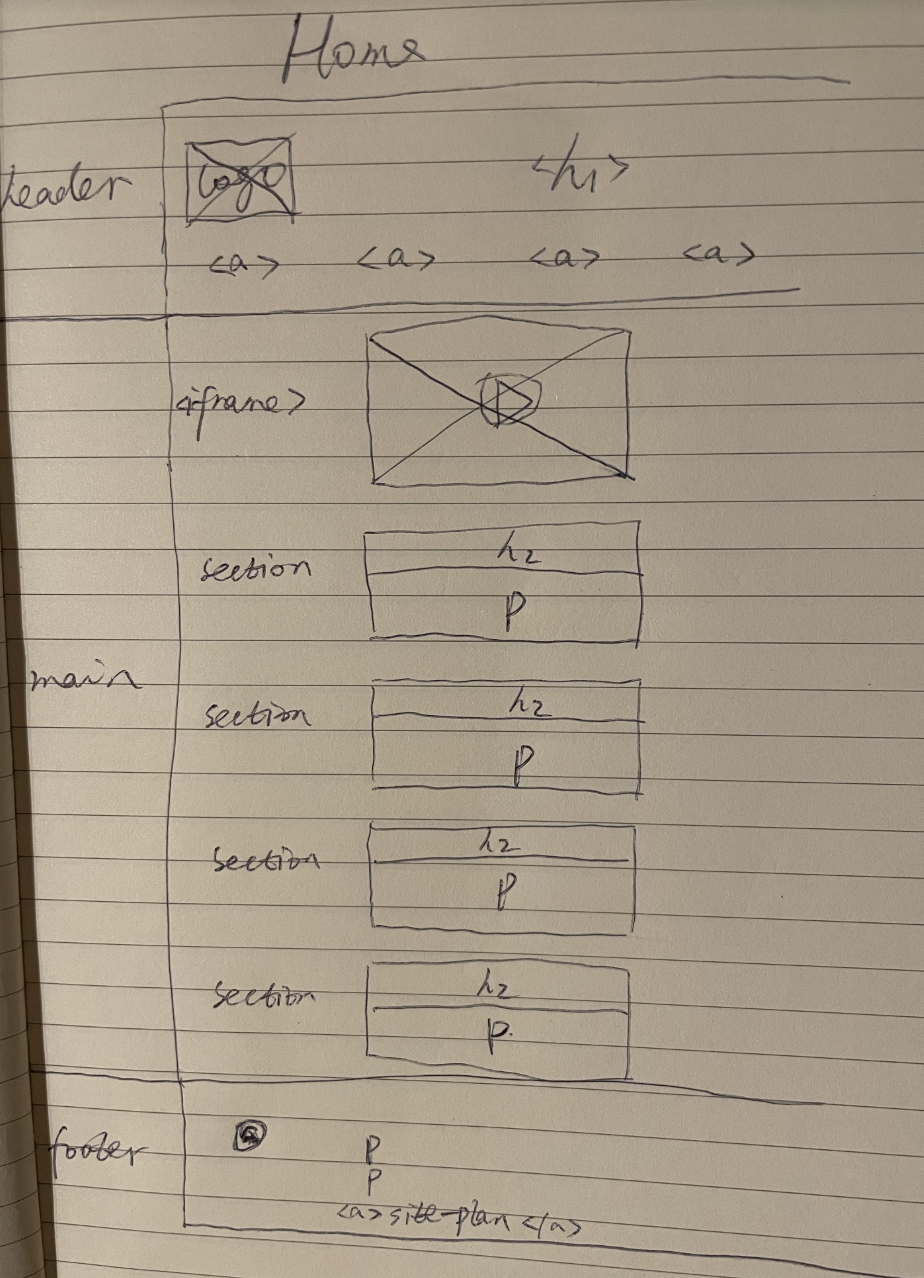 Home
header
Logo
</h1>
<a> <a> <a> <a>
<iframe>
section
h2
P
main
section
h2
P
section
h2
P
section
h2
P.
footer
P
P
<a> site-plan </a>